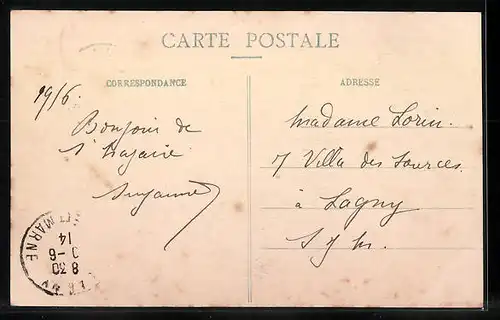 CARTE POSTALE
CORRESPONDANCE
19/6.
Bonjour de
Suzanne
ADRESSE
Madame Lorin.
7 Villa des Sources.
à Lagny
S/M.
MARNE
8 30
-6
14